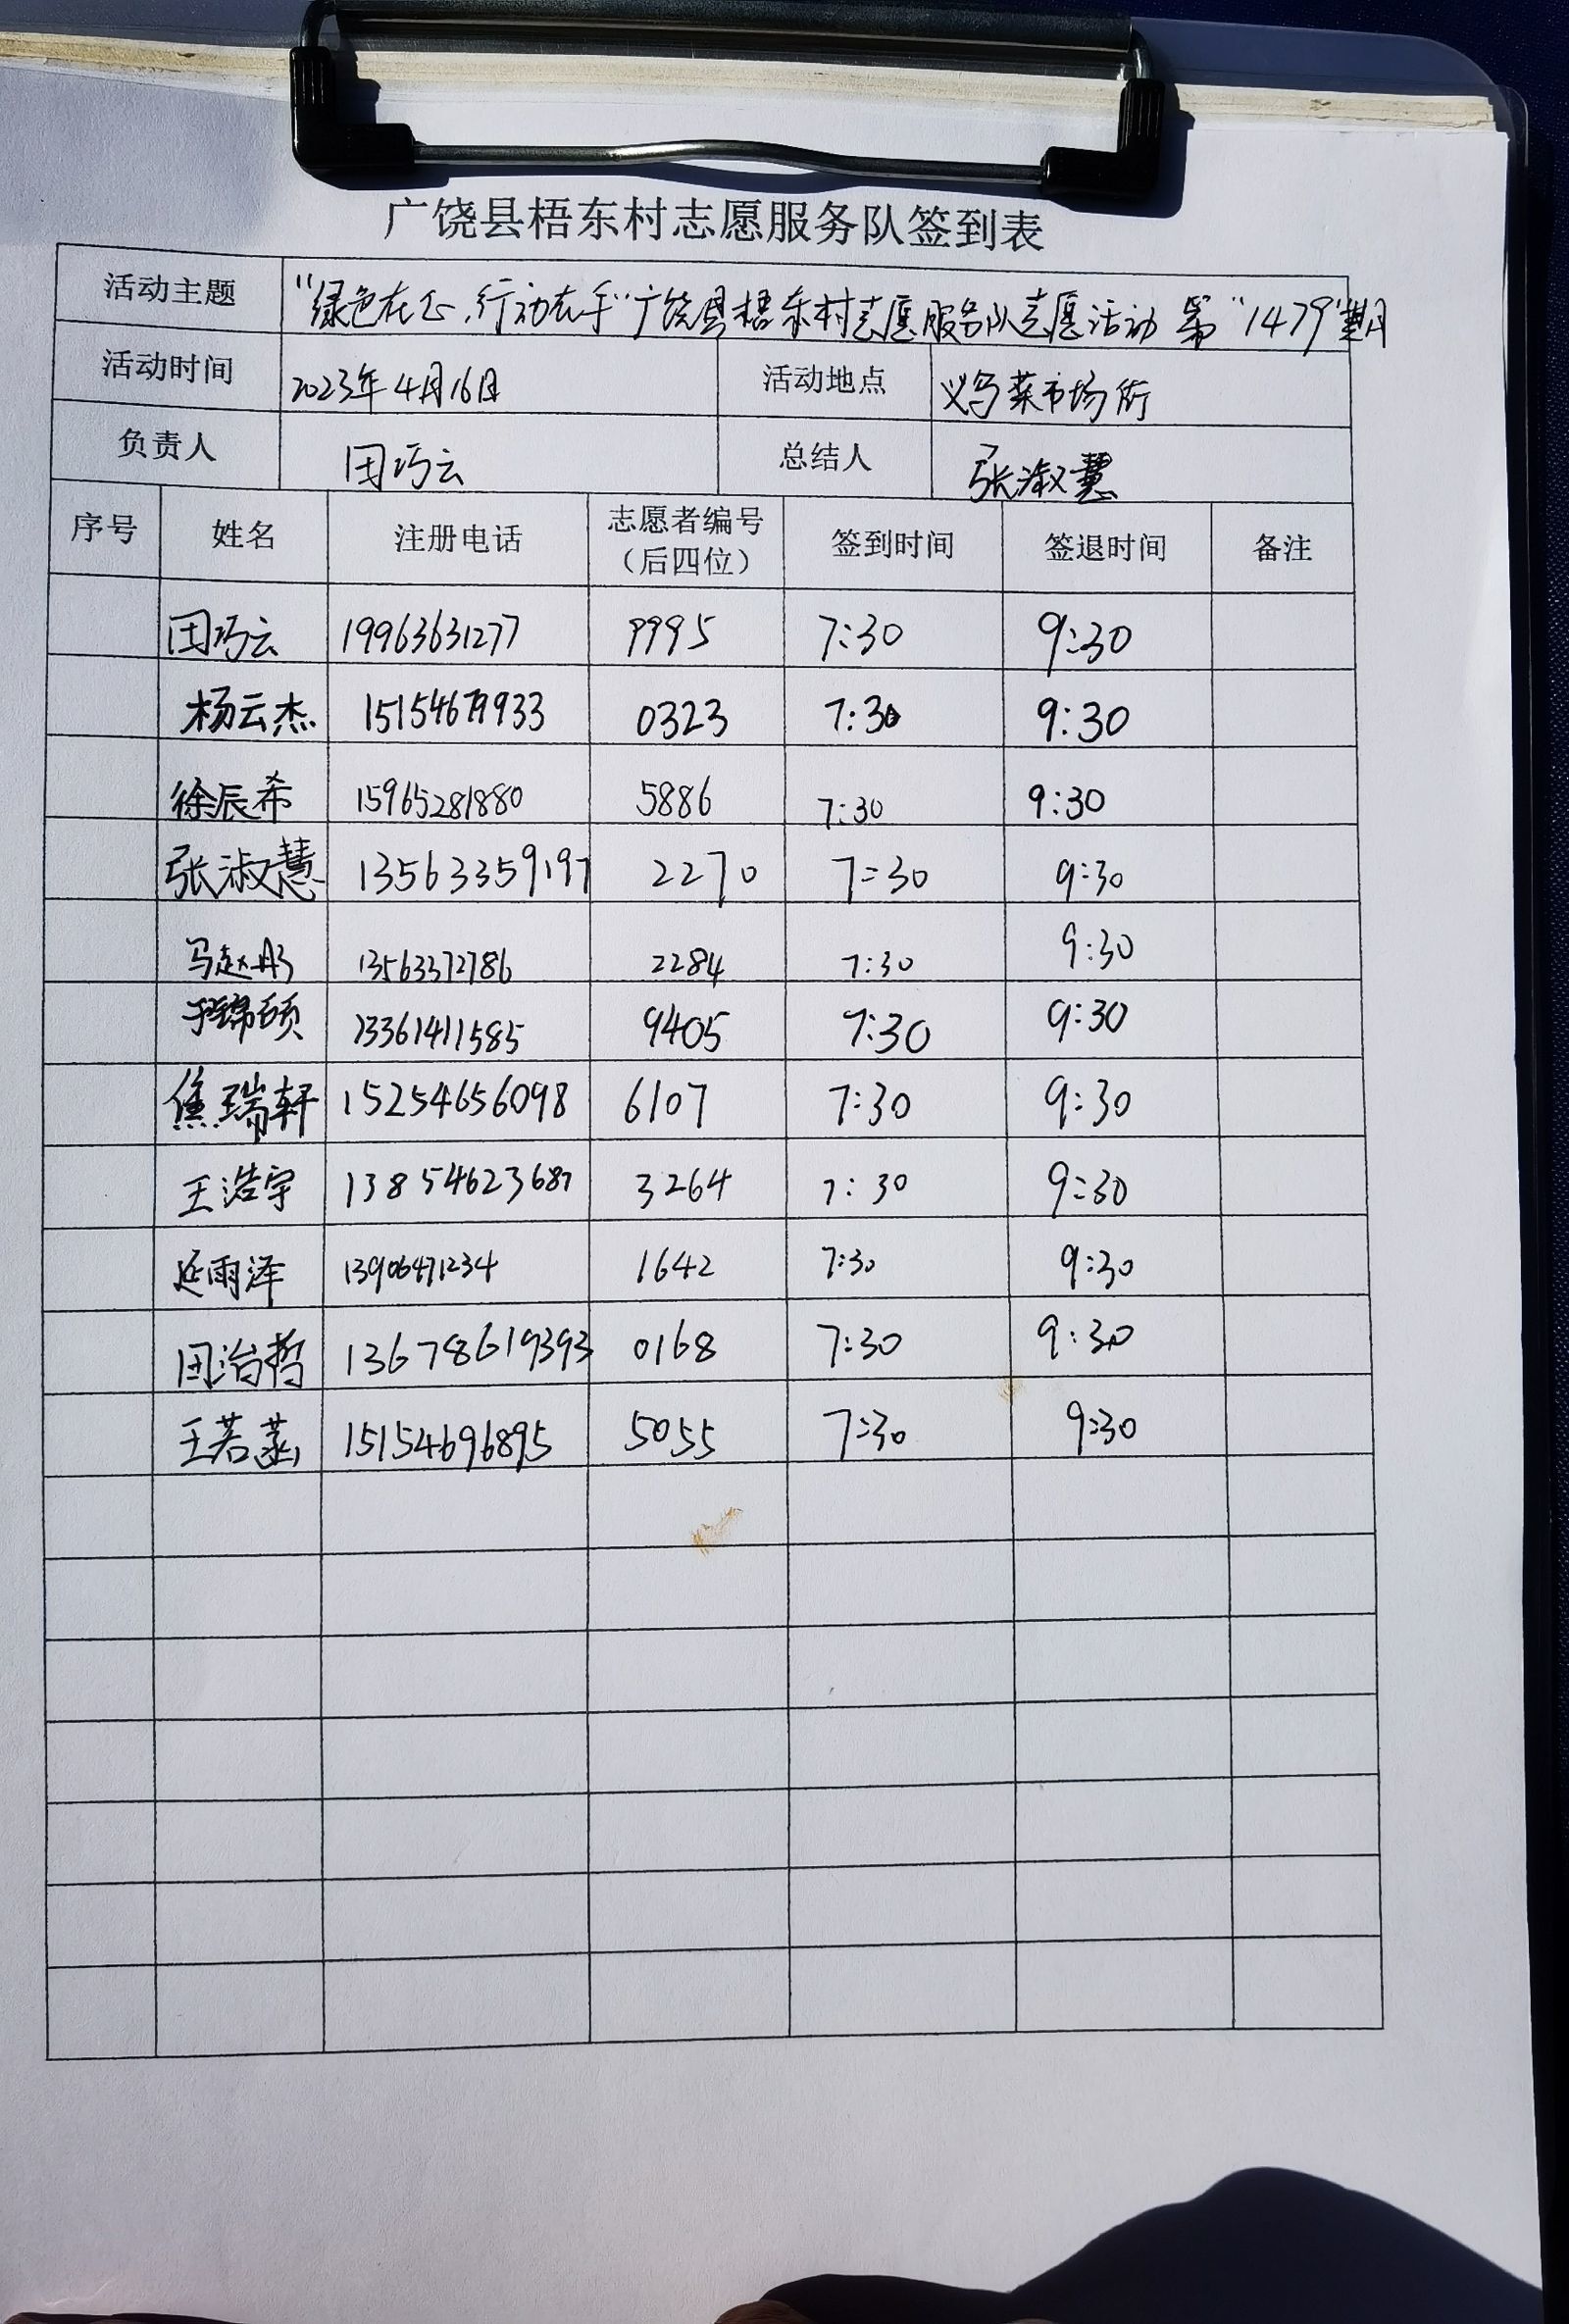 广饶县梧东村志愿服务队签到表
活动主题 "绿色在心,行动在手"广饶县梧东村志愿服务队志愿活动 第"1479"期
活动时间 2023年4月16日 活动地点 义乌菜市场街
负责人 田巧云 总结人 张淑慧
序号 姓名 注册电话 志愿者编号（后四位） 签到时间 签退时间 备注
田巧云 19963631277 9995 7:30 9:30
杨云杰 0323 7:30 9:30
徐辰希 15965281880 5886 7:30 9:30
张淑慧 13563359197 2270 7:30 9:30
马赵彤 13563372786 2284 7:30 9:30
13361411585 9405 7:30 9:30
焦瑞轩 15254656098 6107 7:30 9:30
王浩宇 13854623687 3264 7:30 9:30
延雨泽 13906471234 1642 7:30 9:30
田治哲 13678619393 0168 7:30 9:30
王若菡 15154696895 5055 7:30 9:30